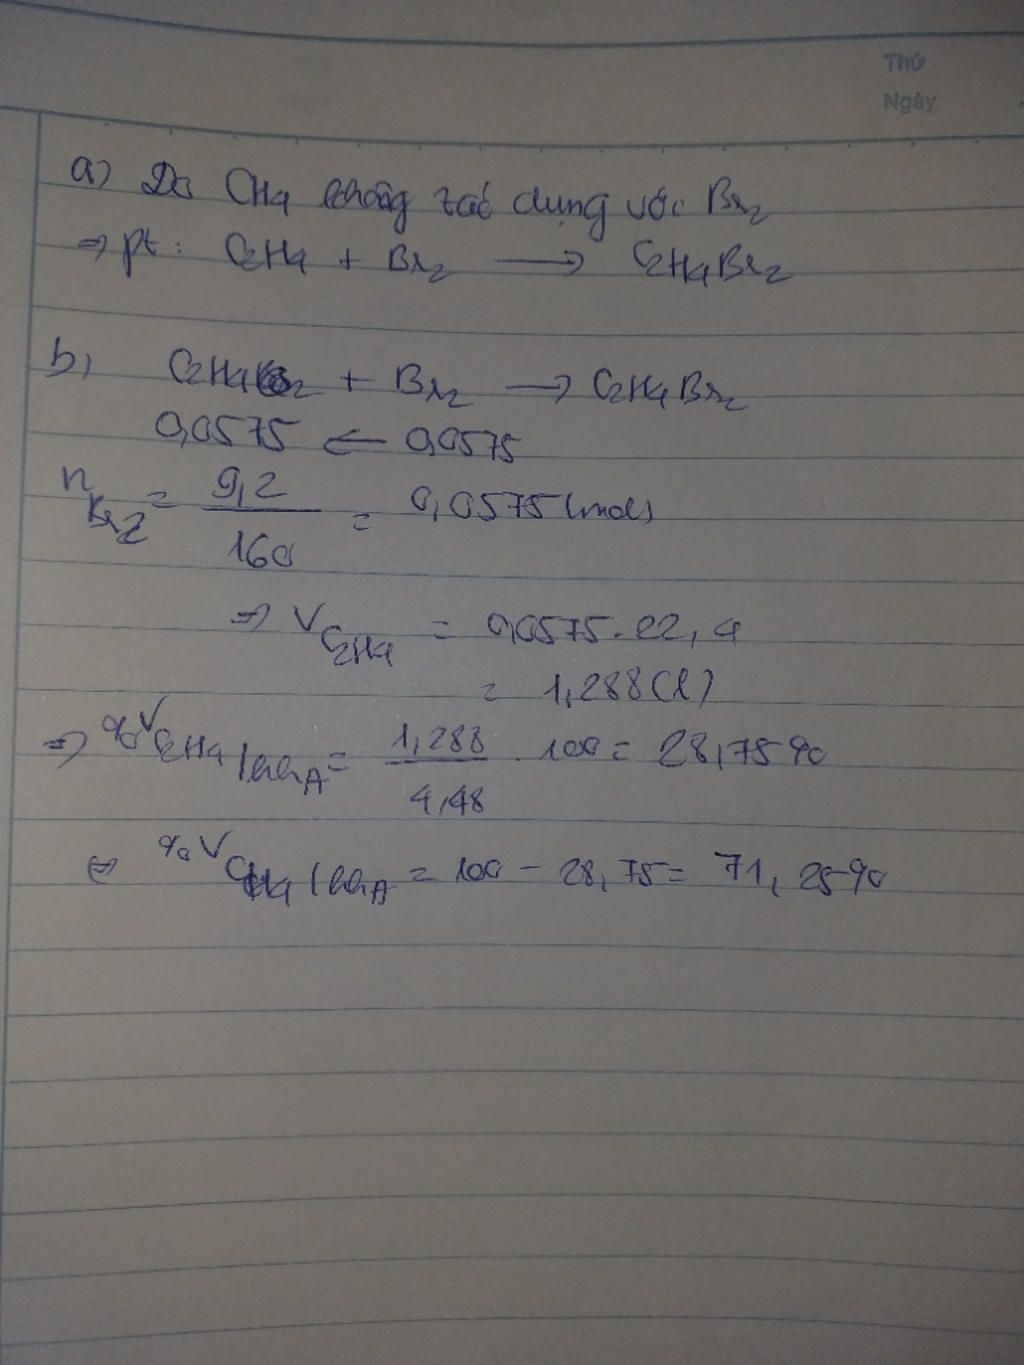 Thứ
Ngày
a) Do CH4 không tác dụng với Br2
=> pt: C2H4 + Br2 → C2H4Br2
b) C2H4 + Br2 → C2H4Br2
0,0575 ← 0,0575
nBr2 = 9,2/160 = 0,0575 (mol)
=> VC2H4 = 0,0575.22,4
= 1,288 (l)
=> %VC2H4/hhA = 1,288/4,48 . 100 = 28,75%
=> %VCH4/hhA = 100 - 28,75 = 71,25%